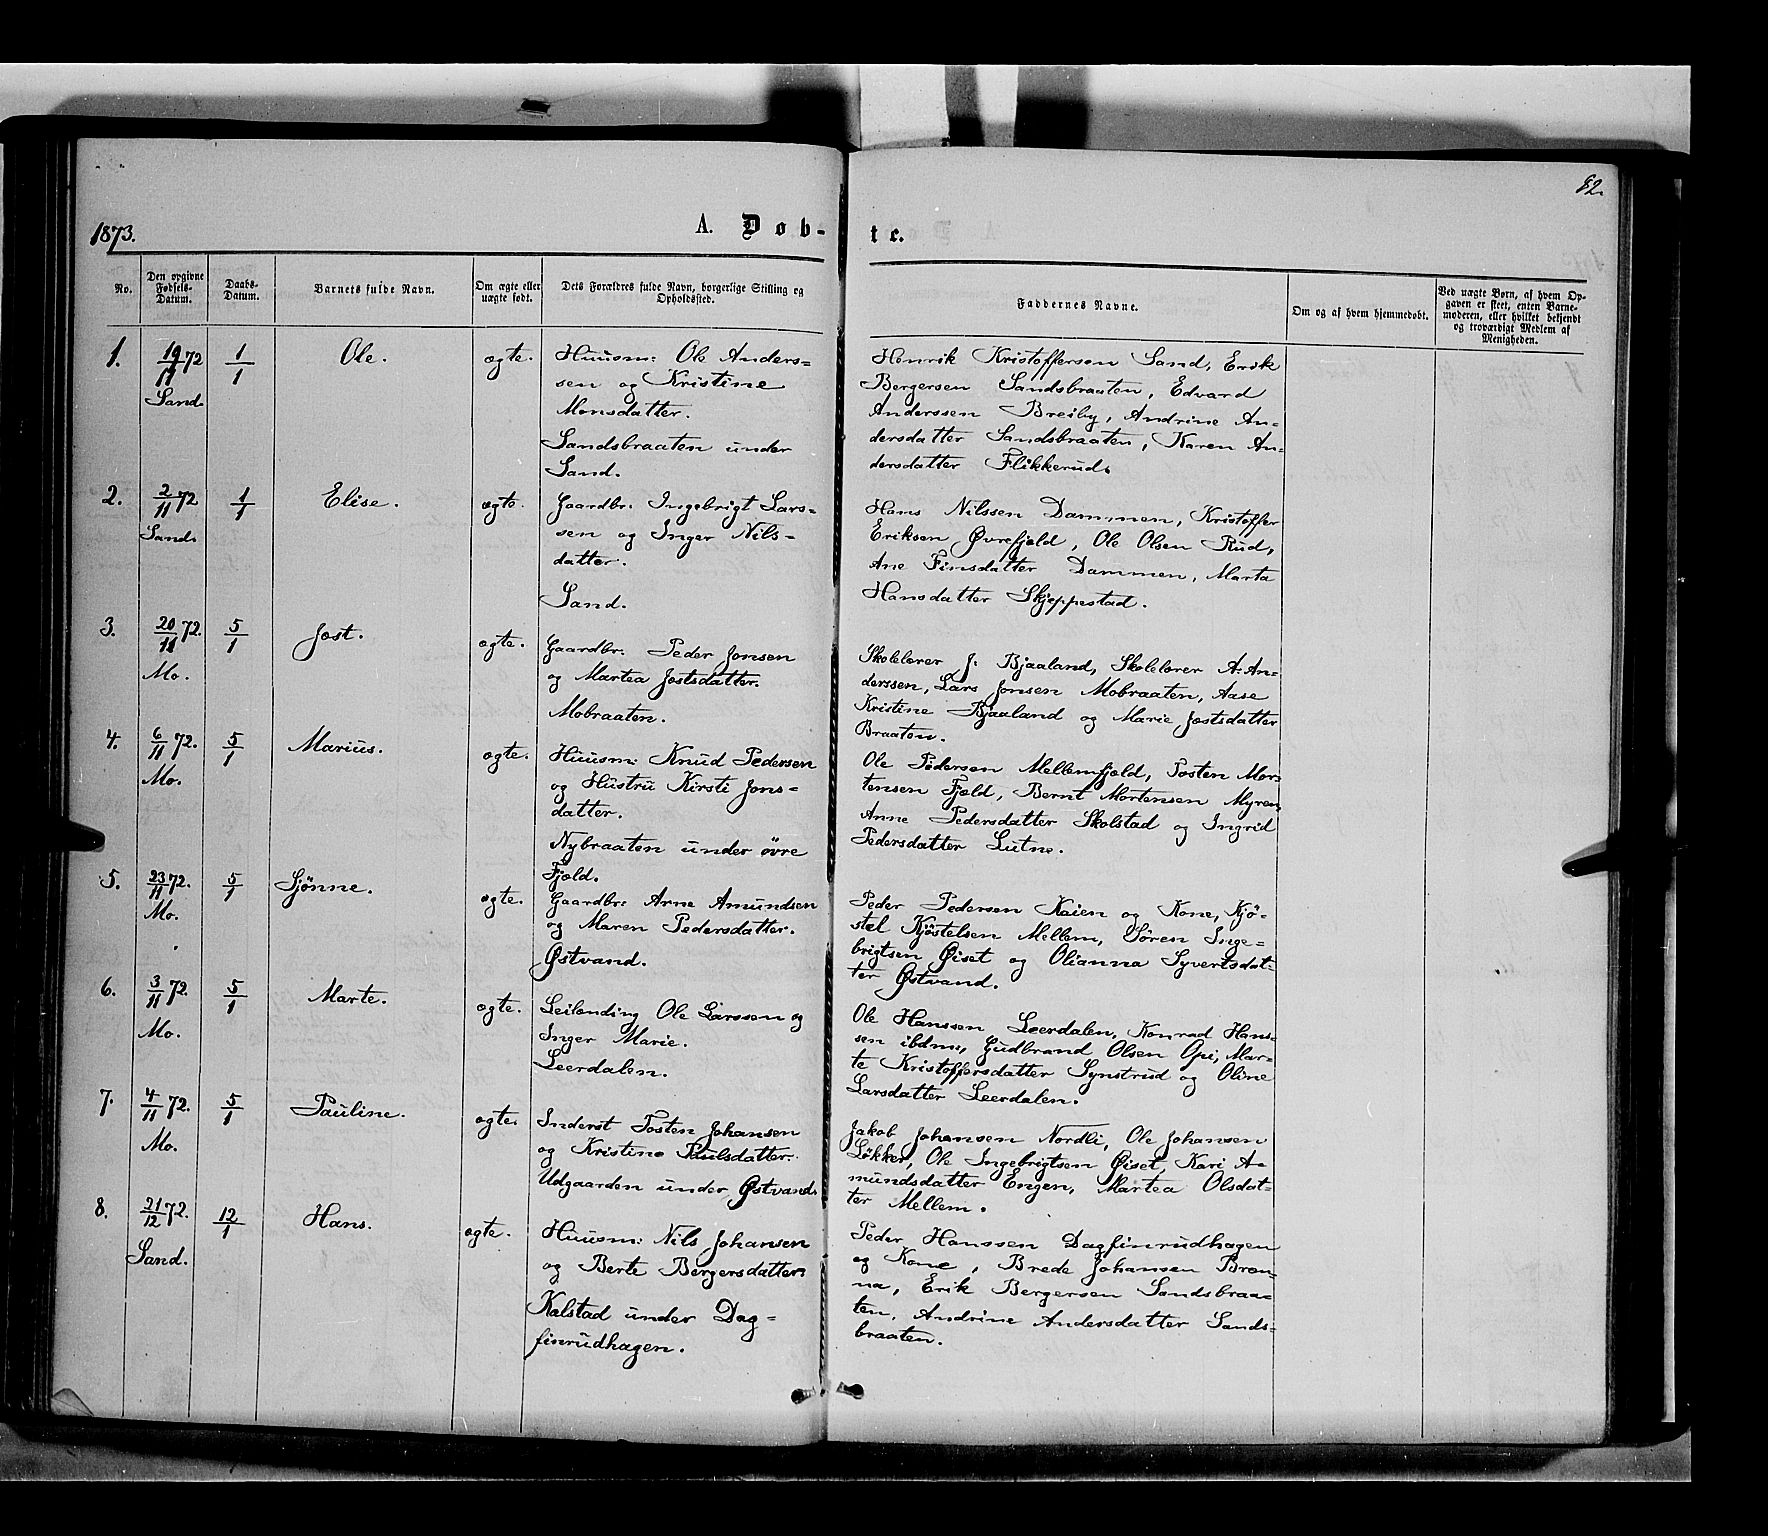 82.
1873.
A. Døb-
te.
No.
Den opgivne Fødsels-Datum.
Daabs-Datum.
Barnets fulde Navn.
Om ægte eller uægte født.
Dets Forældres fulde Navn, borgerlige Stilling og Opholdssted.
Faddernes Navne.
Om og af hvem hjemmedøbt.
Ved uægte Børn, af hvem Op-
gaven er skeet, enten Barne-
moderen, eller hvilket bekjendt
og troværdigt Medlem af
Menigheden.
1. 19/11 72 1/1 Ole. ægte.
Sand.
Huusm: Ole Anders-
sen og Kristine
Monsdatter.
Sandsbraaten under
Sand.
Henrik Kristoffersen Sand, Erik
Bergersen Sandsbraaten, Edvard
Anderssen Breiby, Andrine An-
dersdatter Sandsbraaten, Karen An-
dersdatter Flikkerud.
2. 2/11 72 1/1 Elise. ægte.
Sand.
Gaardbr: Ingebrigt Lars-
sen og Inger Nils-
datter.
Sand.
Hans Nilssen Dammen, Kristoffer
Eriksen Øvrefjeld, Ole Olsen Rud,
Ane Finsdatter Dammen, Marta
Hansdatter Skjeppestad.
3. 20/11 72. 5/1 Jost. ægte.
Mo.
Gaardbr: Peder Jonsen
og Martea Jostsdatter.
Mobraaten.
Skolelærer J. Bjaaland, Skolelærer A. An-
derssen, Lars Jonsen Mobraaten, Aase
Kristine Bjaaland og Marie Jostsdatter
Braaten.
4. 6/11 72. 5/1 Marius. ægte.
Mo.
Huusm: Knud Pedersen
og Hustru Kirsti Jons-
datter.
Nybraaten under øvre
Fjeld.
Ole Pedersen Mellemfjeld, Tosten Mor-
tensen Fjeld, Bernt Mortensen Myren,
Anne Pedersdatter Skolstad og Ingrid
Pedersdatter Lutne.
5. 23/11 72. 5/1 Sjønne. ægte.
Mo.
Gaardbr: Arne Amundsen
og Maren Pedersdatter.
Østvand.
Peder Pedersen Kaien og Kone, Kjø-
stel Kjøstelsen Mellem, Søren Inge-
brigtsen Øiset og Olianna Syvertsdat-
ter Østvand.
6. 3/11 72. 5/1 Marte. ægte.
Mo.
Leilending Ole Larssen og
Inger Marie.
Leerdalen.
Ole Hanssen Leerdalen, Konrad Hans-
sen ibdm, Gudbrand Olsen Opi, Mar-
te Kristoffersdatter Synstrud og Oline
Larsdatter Leerdalen.
7. 4/11 72. 5/1 Pauline. ægte.
Mo.
Inderst Tosten Johansen
og Kristine Paulsdatter.
Udgaarden under Østvand.
Jakob Johansen Nordli, Ole Johansen
Løkker, Ole Ingebrigtsen Øiset, Kari A-
mundsdatter Engen, Martea Olsdat-
ter Mellem.
8. 21/12 72. 12/1 Hans. ægte.
Sand.
Huusm: Nils Johansen
og Berte Bergersdatter.
Kalstad under Dag-
finrudhagen.
Peder Hanssen Dagfinrudhagen
og Kone, Brede Johansen Bræn-
na, Erik Bergersen Sandsbraa-
ten, Andrine Andersdatter Sands-
braaten.